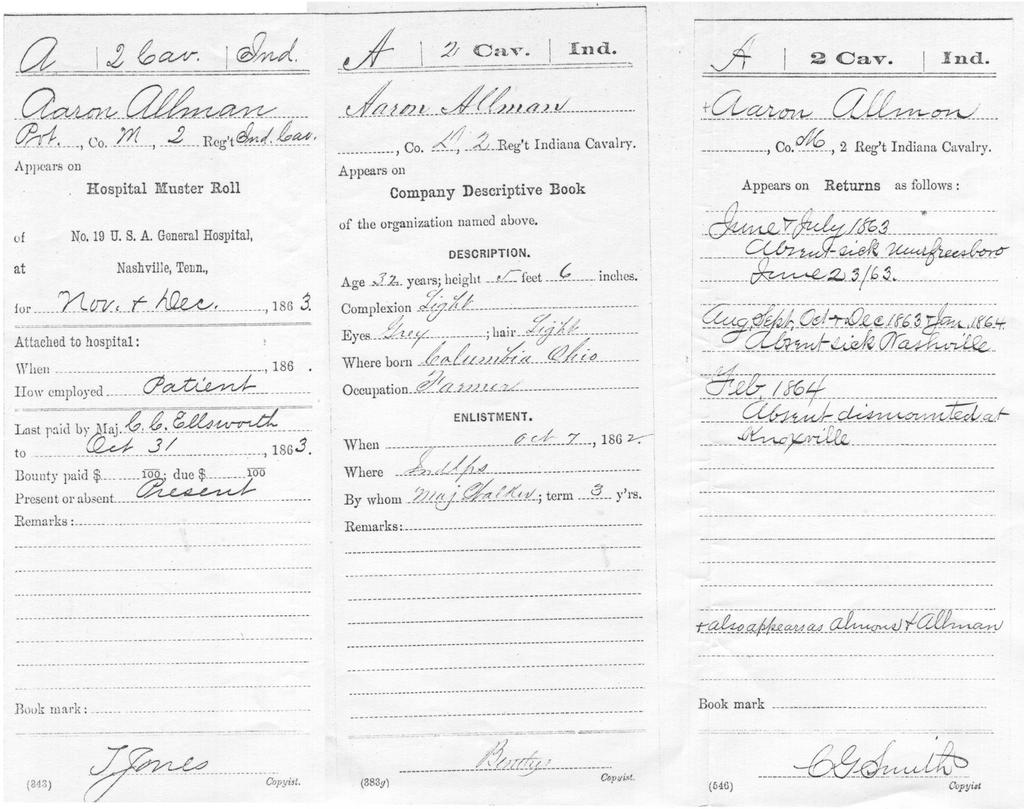 A | 2 Cav. | Ind.
Aaron Allman
Pvt., Co. M, 2 Reg't Ind. Cav.
Appears on
Hospital Muster Roll
of No. 19 U. S. A. General Hospital,
at Nashville, Tenn.,
for Nov. + Dec., 1863.
Attached to hospital:
When , 186 .
How employed Patient
Last paid by Maj. C. C. Ellsworth
to Oct 31, 1863.
Bounty paid $ 100; due $ 100
Present or absent Present
Remarks:
Book mark:
T Jones
(343) Copyist.
A | 2 Cav. | Ind.
Aaron Allman
, Co. , 2 Reg't Indiana Cavalry.
Appears on
Company Descriptive Book
of the organization named above.
DESCRIPTION.
Age 32 years; height 5 feet 6 inches.
Complexion Light
Eyes Grey; hair Light
Where born Columbia Ohio
Occupation Farmer
ENLISTMENT.
When Oct 7, 1862.
Where Indlps
By whom Maj Walker; term 3 y'rs.
Remarks:
(383g) Copyist.
A | 2 Cav. | Ind.
+Aaron Allmon
, Co. M, 2 Reg't Indiana Cavalry.
Appears on Returns as follows:
June + July 1863
Absent sick Murfreesboro
June 23/63.
Aug, Sept, Oct + Dec 1863 + Jan 1864
Absent sick Nashville
Feb. 1864
Absent dismounted at
Knoxville
+ also appears as Almons + Allman
Book mark
C G Smith
(546) Copyist